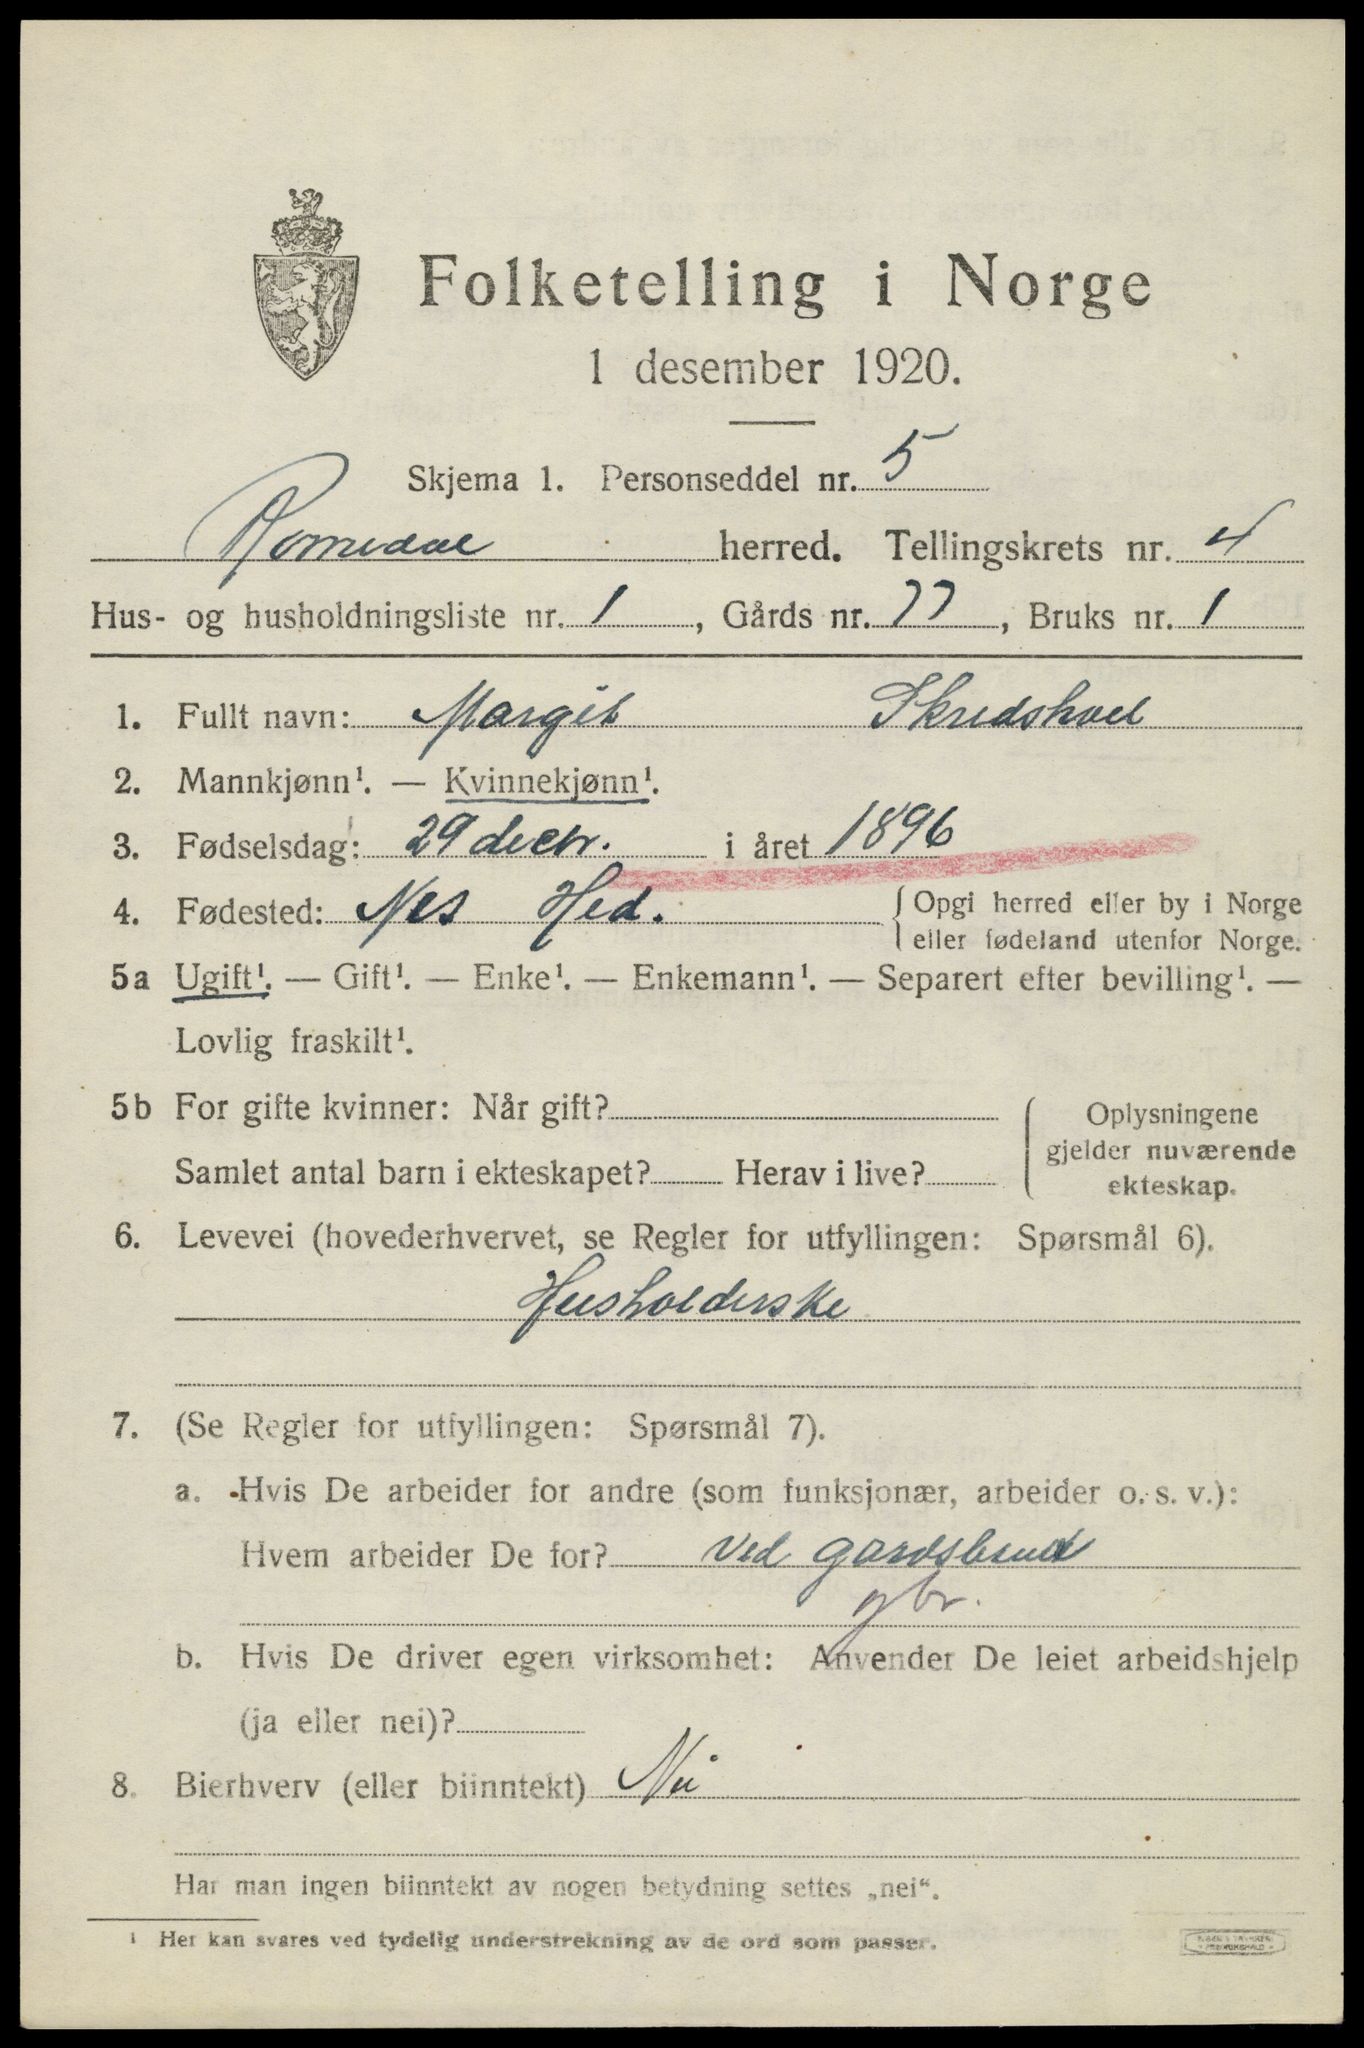 Folketelling i Norge
1 desember 1920.
Skjema 1. Personseddel nr. 5
Romedal herred. Tellingskrets nr. 4
Hus- og husholdningsliste nr. 1, Gårds nr. 77, Bruks nr. 1
1. Fullt navn: Margit Skredshvel
2. Mannkjønn¹. — Kvinnekjønn¹.
3. Fødselsdag: 29 decbr. i året 1896
4. Fødested: Nes Hed. { Opgi herred eller by i Norge
eller fødeland utenfor Norge.
5a Ugift¹. — Gift¹. — Enke¹. — Enkemann¹. — Separert efter bevilling¹. —
Lovlig fraskilt¹.
5b For gifte kvinner: Når gift?
Samlet antal barn i ekteskapet? Herav i live?
Oplysningene
gjelder nuværende
ekteskap.
6. Levevei (hovederhvervet, se Regler for utfyllingen: Spørsmål 6).
Husholderske
7. (Se Regler for utfyllingen: Spørsmål 7).
a. Hvis De arbeider for andre (som funksjonær, arbeider o. s. v.):
Hvem arbeider De for? Ved gardsbruk
gbr.
b. Hvis De driver egen virksomhet: Anvender De leiet arbeidshjelp
(ja eller nei)?
8. Bierhverv (eller biinntekt) Nei
Har man ingen biinntekt av nogen betydning settes „nei“.
¹ Her kan svares ved tydelig understrekning av de ord som passer.